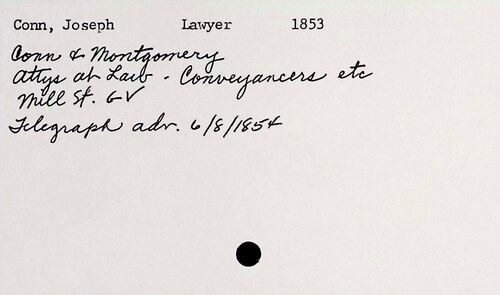 Conn, Joseph Lawyer 1853
Conn & Montgomery
Attys at Law - Conveyancers etc
Mill St. GV
Telegraph adv. 6/8/1854